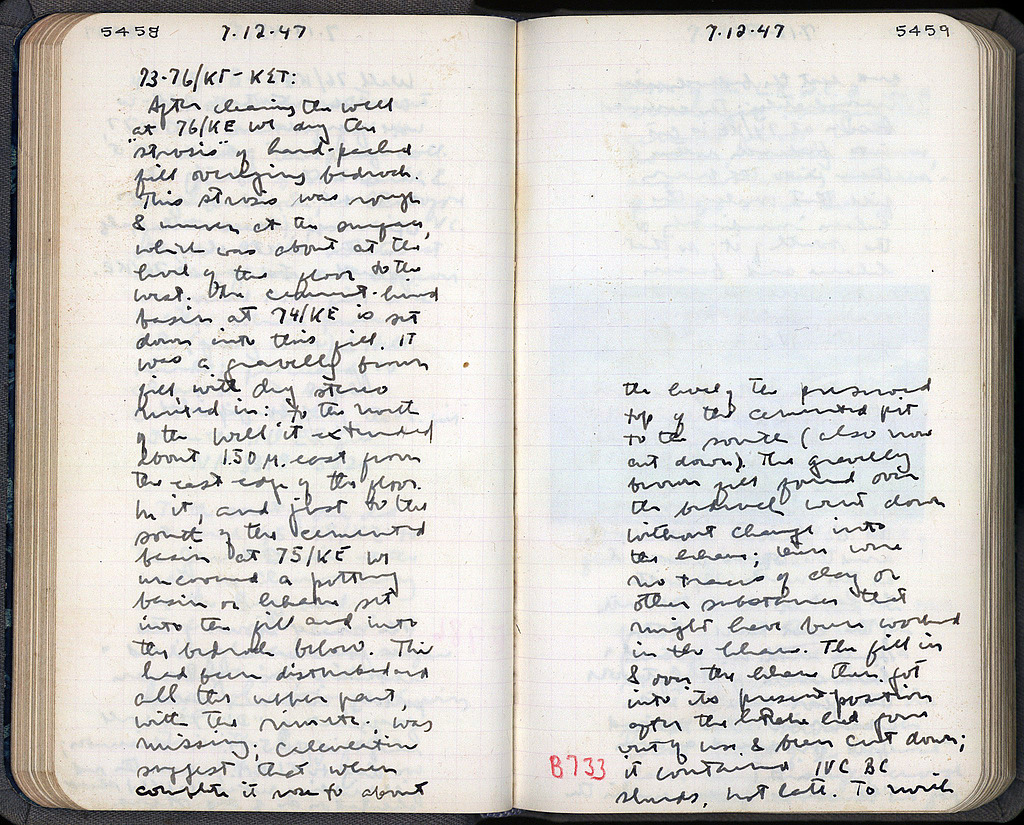 5458 7.12.47
73-76/KΓ-KΣT:
After clearing the well
at 76/KE we dug the
"strosis" of hard-packed
fill overlying bedrock.
This strosis was rough
& uneven at the surface,
which was about at the
level of the floor to the
west. The cement-lined
basin at 74/KE is set
down into this fill. It
was a gravelly brown
fill with dug stereo
mixed in: to the north
of the well it extended
about 1.50 M. east from
the east edge of the floor.
In it, and just to the
south of the cemented
basin at 75/KE we
uncovered a potting
basin or lekane set
into the fill and into
the bedrock below. This
had been disturbed and
all the upper part,
with the rim etc. was
missing; calculation
suggest that when
complete it rose to about
7.12.47 5459
the level of the preserved
top of the cemented pit
to the south (also now
cut down). The gravelly
brown fill found over
the bedrock went down
without change into
the lekane; there were
no traces of clay or
other substances that
might have been worked
in the lekane. The fill in
& over the lekane then got
into its present position
after the lekane had gone
out of use & been cut down;
B733
it contained IVC BC
sherds, not late. To north